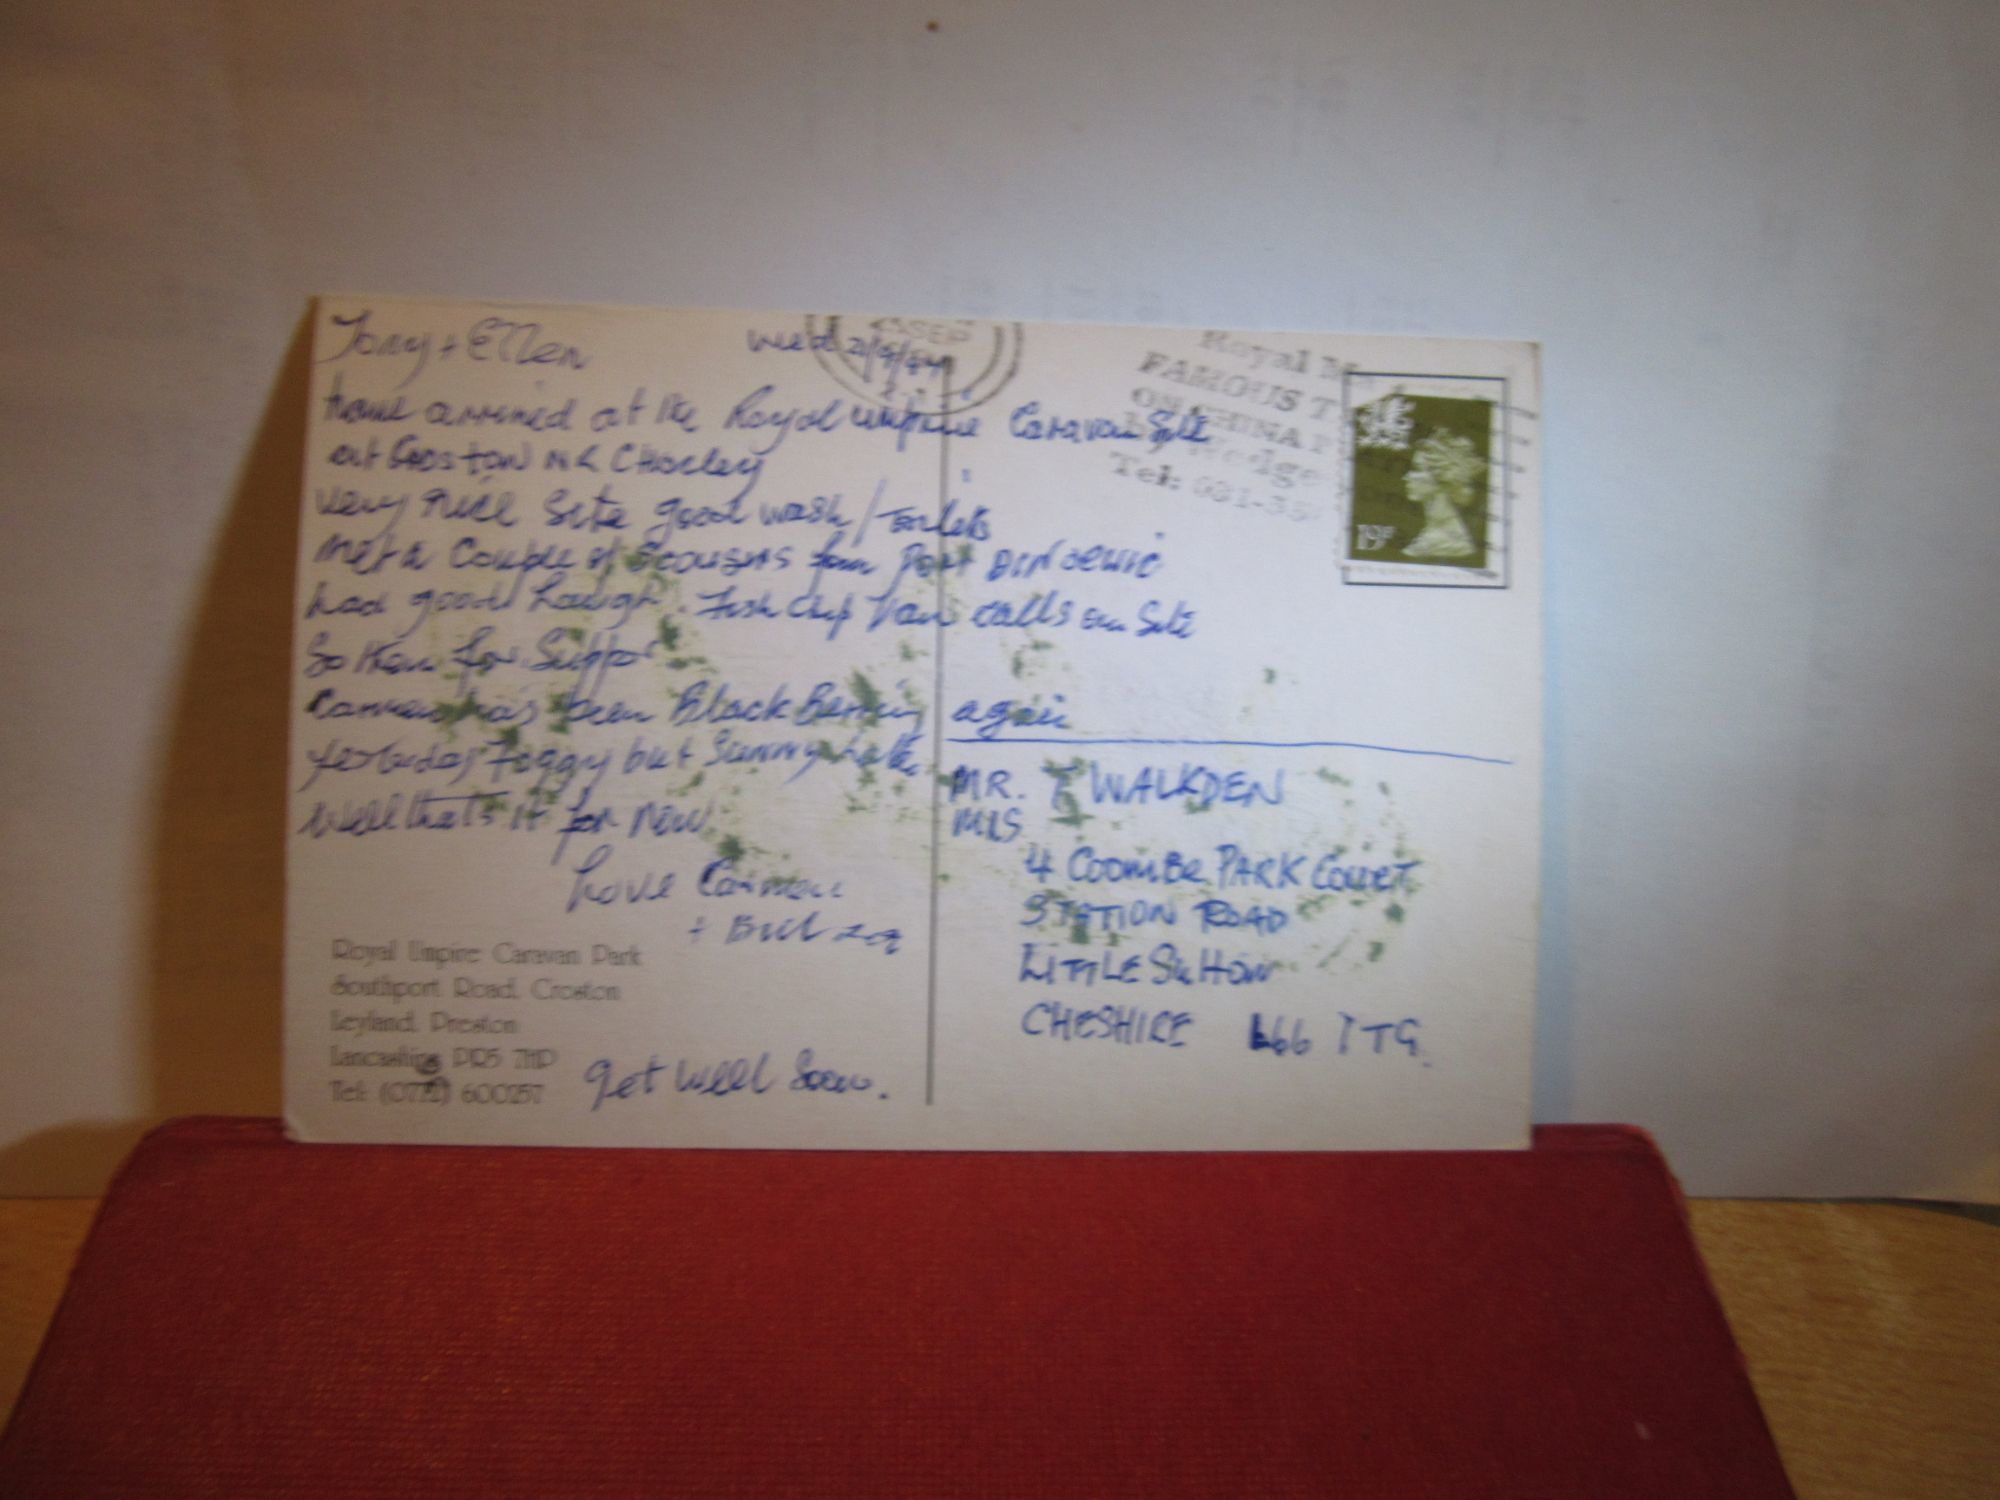 Tony + Ellen
Wed
SEP
have arrived at the Royal Umpire Caravan Site
at Croston NR Chorley
very nice site good wash/toilets
met a couple of scousers from Port
had good laugh. Fish Chip Van calls on Site
So than for Supper
Carmen has been Black Berring again
yesterday Foggy but Sunny
Well that's it for now
Love Carmen
+ Bill
Get Well Soon.
Royal Umpire Caravan Park
Southport Road, Croston
Leyland, Preston
Lancashire PR5 7HP
Tel: (0772) 600257
Royal
FAMOUS
ON CHINA
Tel: 031-
19P
MR. T WALKDEN
MRS
4 Coombe PARK Court
STATION ROAD
LITTLE Sutton
CHESHIRE L66